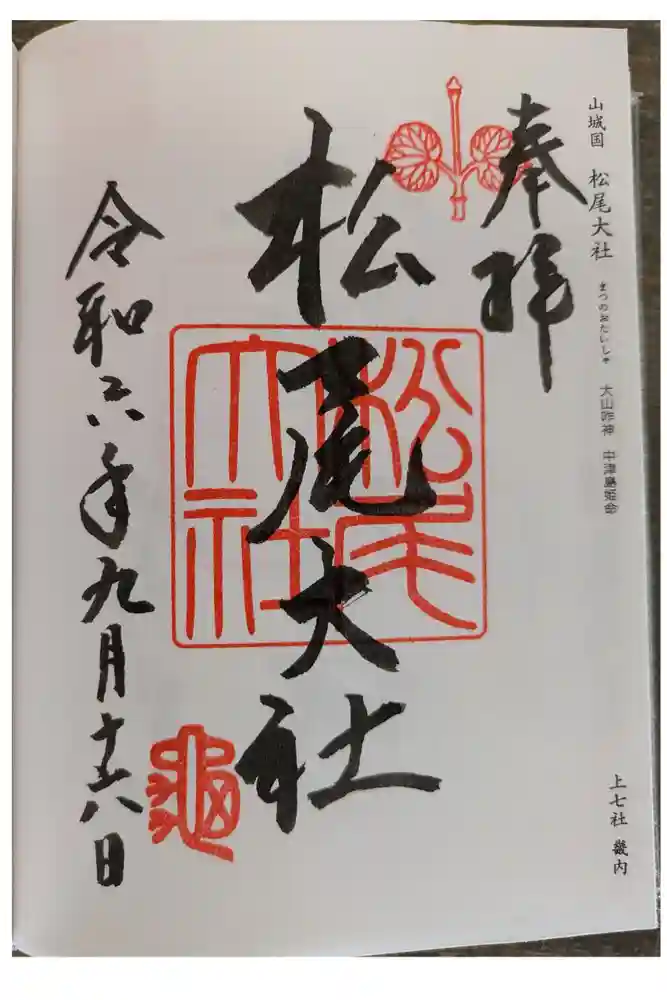 山城国 松尾大社 まつのおたいしゃ 大山咋神 中津島姫命
上七社 畿内
奉拝
松尾大社
松尾大社
令和六年九月十八日